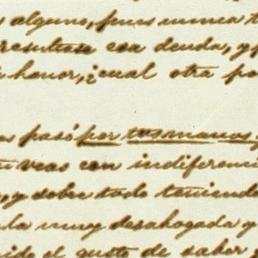 alguno, pues nunca t
resultase esa deuda, y p
honor, ¿cual otra po
s pasó por tus manos y
veas con indiferenci
, y sobre todo teniendo
la muy desahogada y
ido el gusto de saber